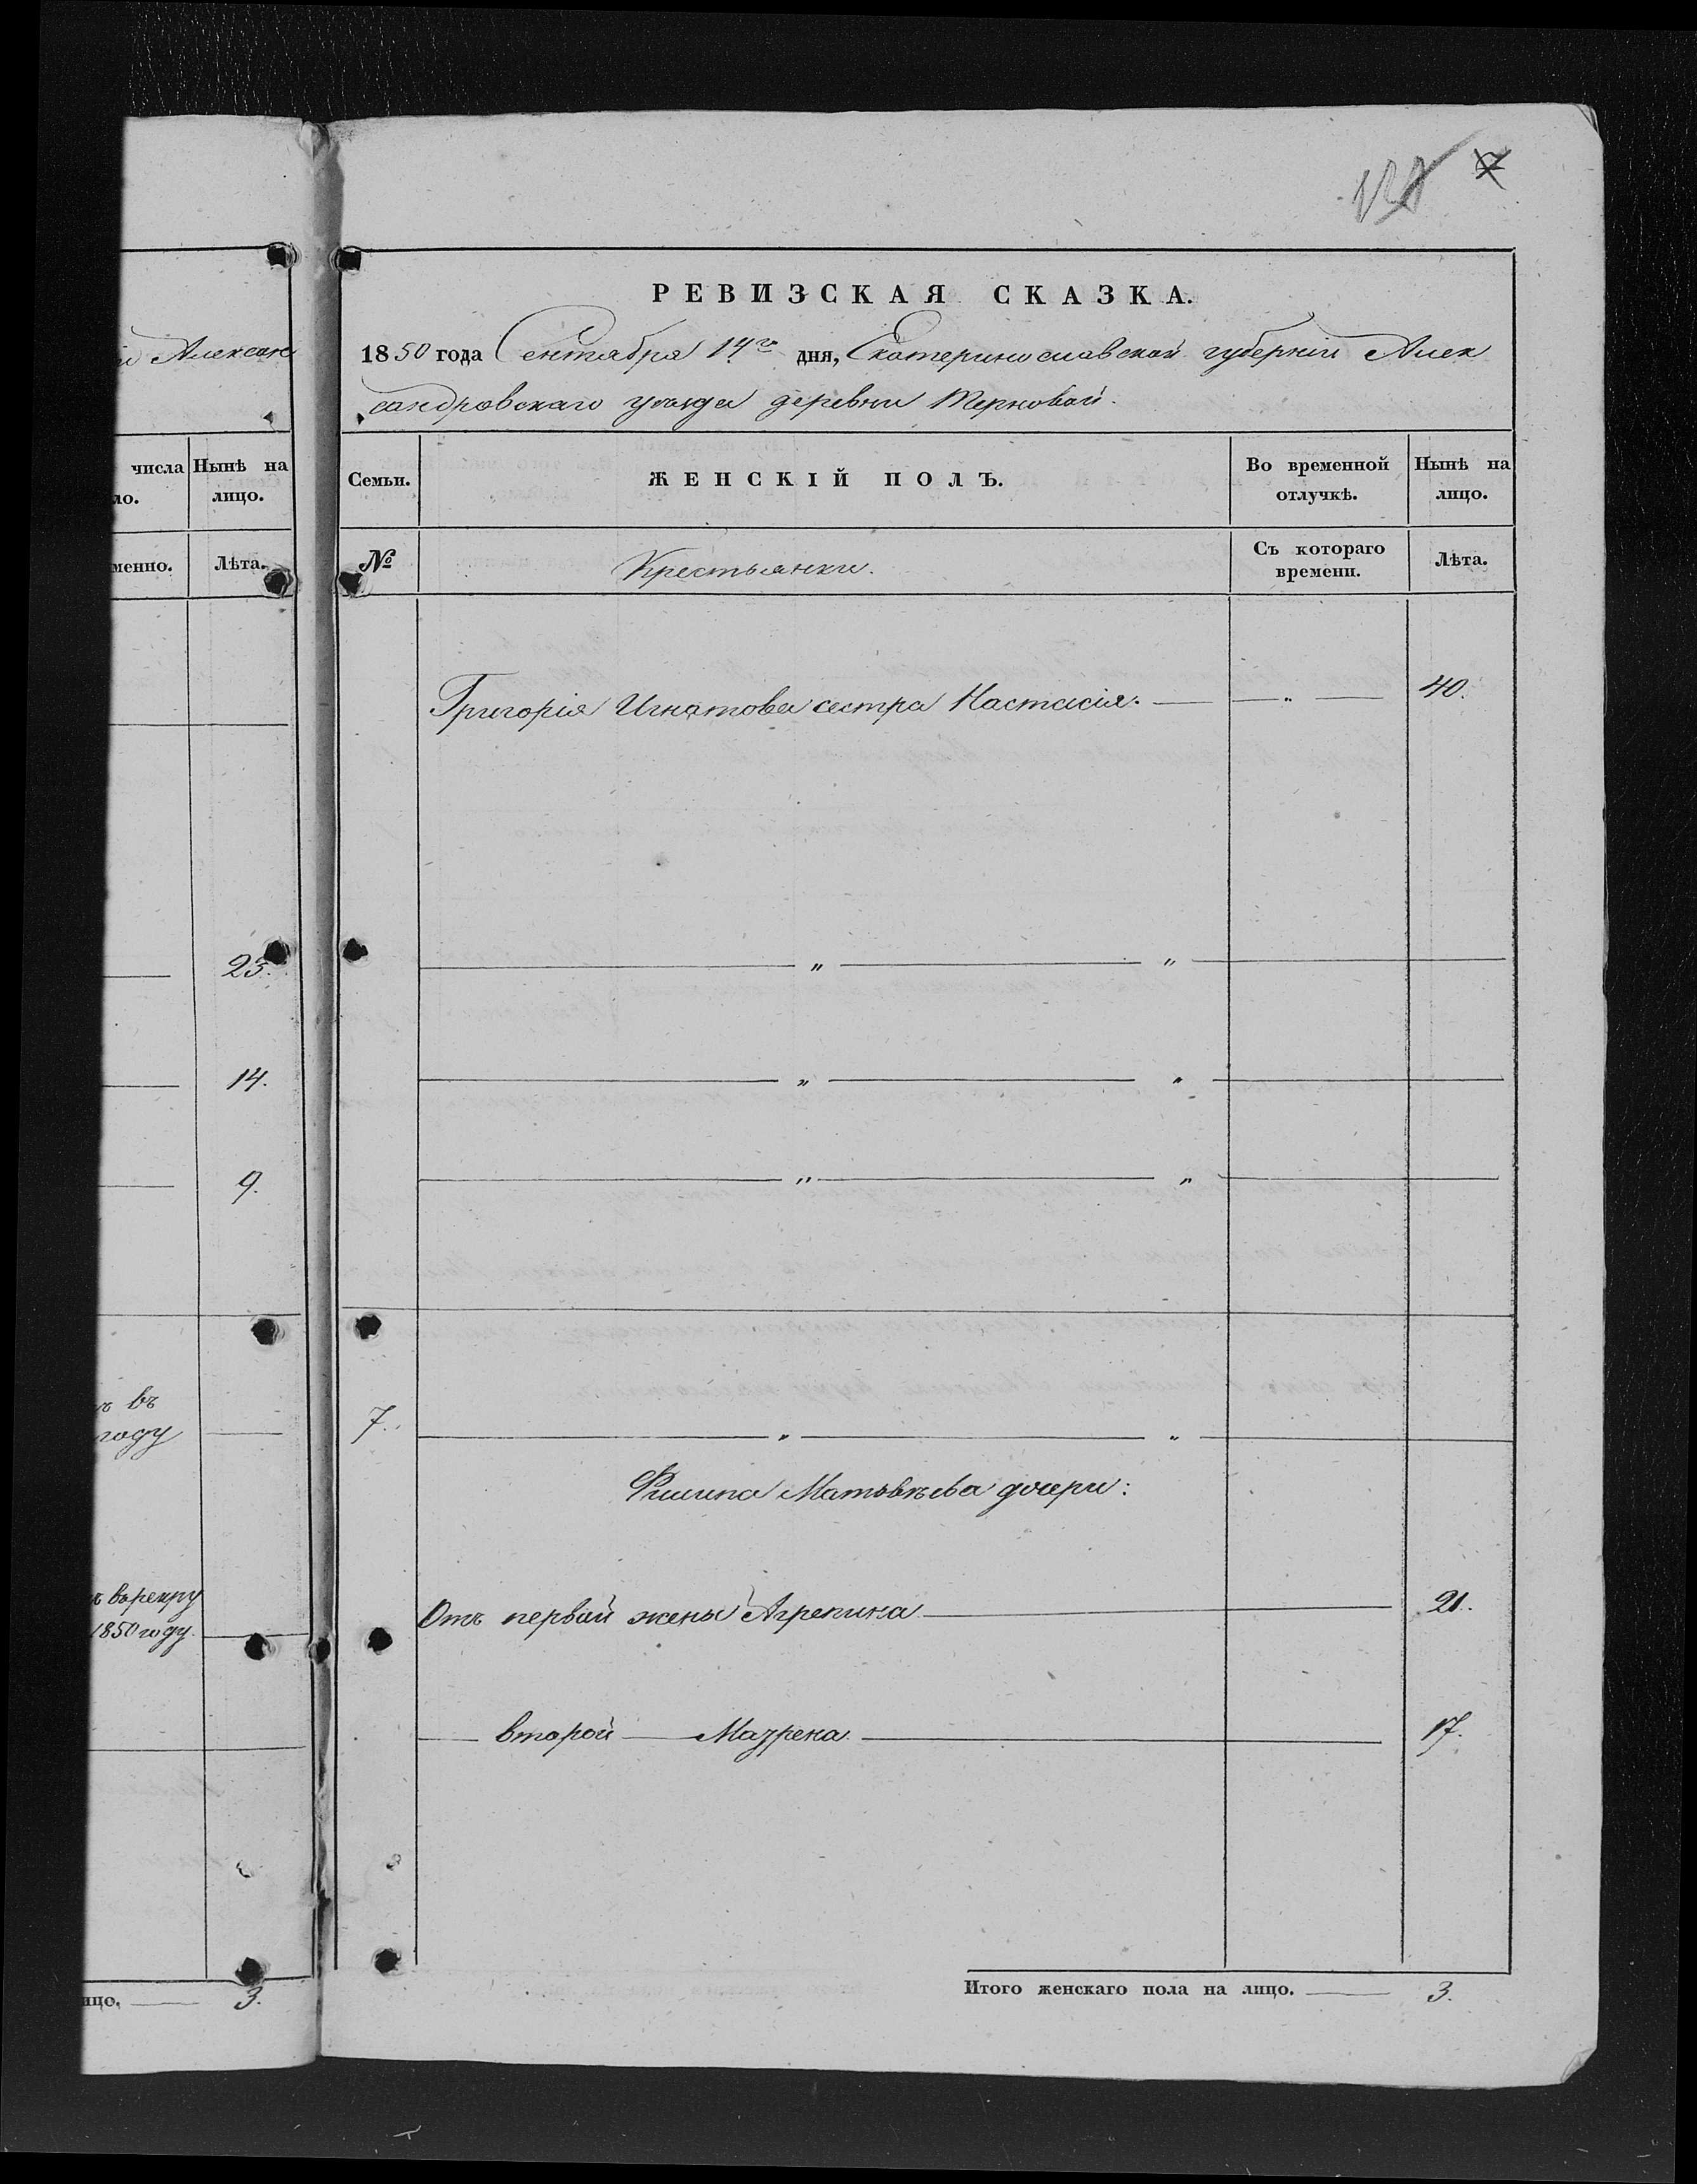 7
и Алексан
числа Нынѣ на
ло. лицо.
менно. Лѣта.
23.
14.
9.
ъ въ
году
ъ въ рекру
1850 году.
ицо. 3.
РЕВИЗСКАЯ СКАЗКА.
1850 года Сентября 14го дня, Екатеринославской губерніи Алек
сандровскаго уѣзда деревни Терновой.
Семьи. ЖЕНСКІЙ ПОЛЪ. Во временной отлучкѣ. Нынѣ на лицо.
№ Крестьянки. Съ котораго времени. Лѣта.
Григорія Игнатова сестра Настасія. — — „ — 40.
„ „
„ „
„ „
7. „ „
Филипа Матвѣева дочери:
Отъ первой жены Агрепина — 21.
— второй — Мазрена. — 17.
Итого женскаго пола на лицо. — 3.